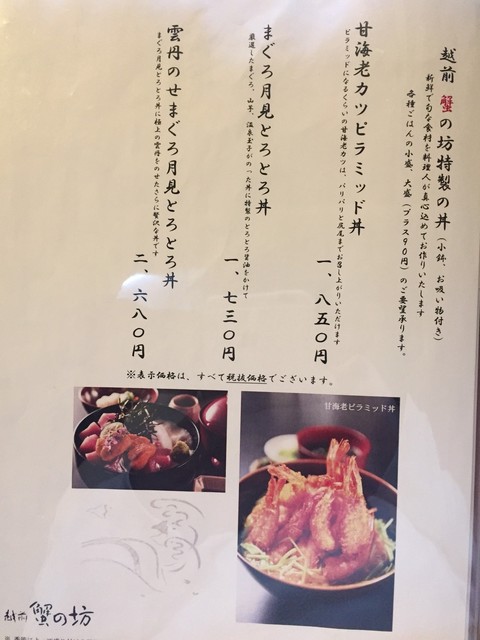 越前 蟹の坊特製の丼（小鉢、お吸い物付き）
新鮮で旬な食材を料理人が真心込めてお作りいたします
各種ごはんの小盛、大盛（プラス90円）のご要望承ります。
甘海老カツピラミッド丼
ピラミッドになるくらいの甘海老カツは、バリバリと尻尾までお召し上がりいただけます
一、八五〇円
まぐろ月見とろとろ丼
厳選したまぐろ、山芋、温泉玉子がのった丼に特製のとろとろ醤油をかけて
一、七三〇円
雲丹のせまぐろ月見とろとろ丼
まぐろ月見とろとろ丼に極上の雲丹をのせたさらに贅沢な丼です
二、六八〇円
※表示価格は、すべて税抜価格でございます。
甘海老ピラミッド丼
越前 蟹の坊